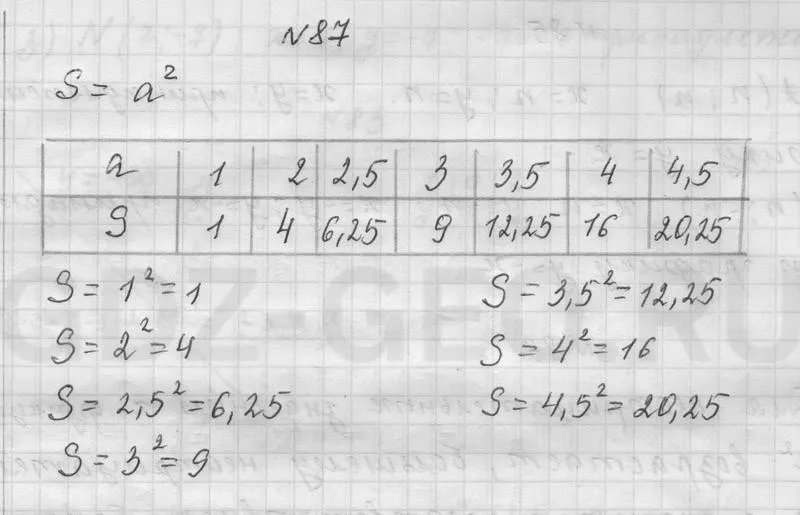 №87
S = a²
a 1 2 2,5 3 3,5 4 4,5
S 1 4 6,25 9 12,25 16 20,25
S = 1² = 1
S = 2² = 4
S = 2,5² = 6,25
S = 3² = 9
S = 3,5² = 12,25
S = 4² = 16
S = 4,5² = 20,25
GDZ-GEO.RU